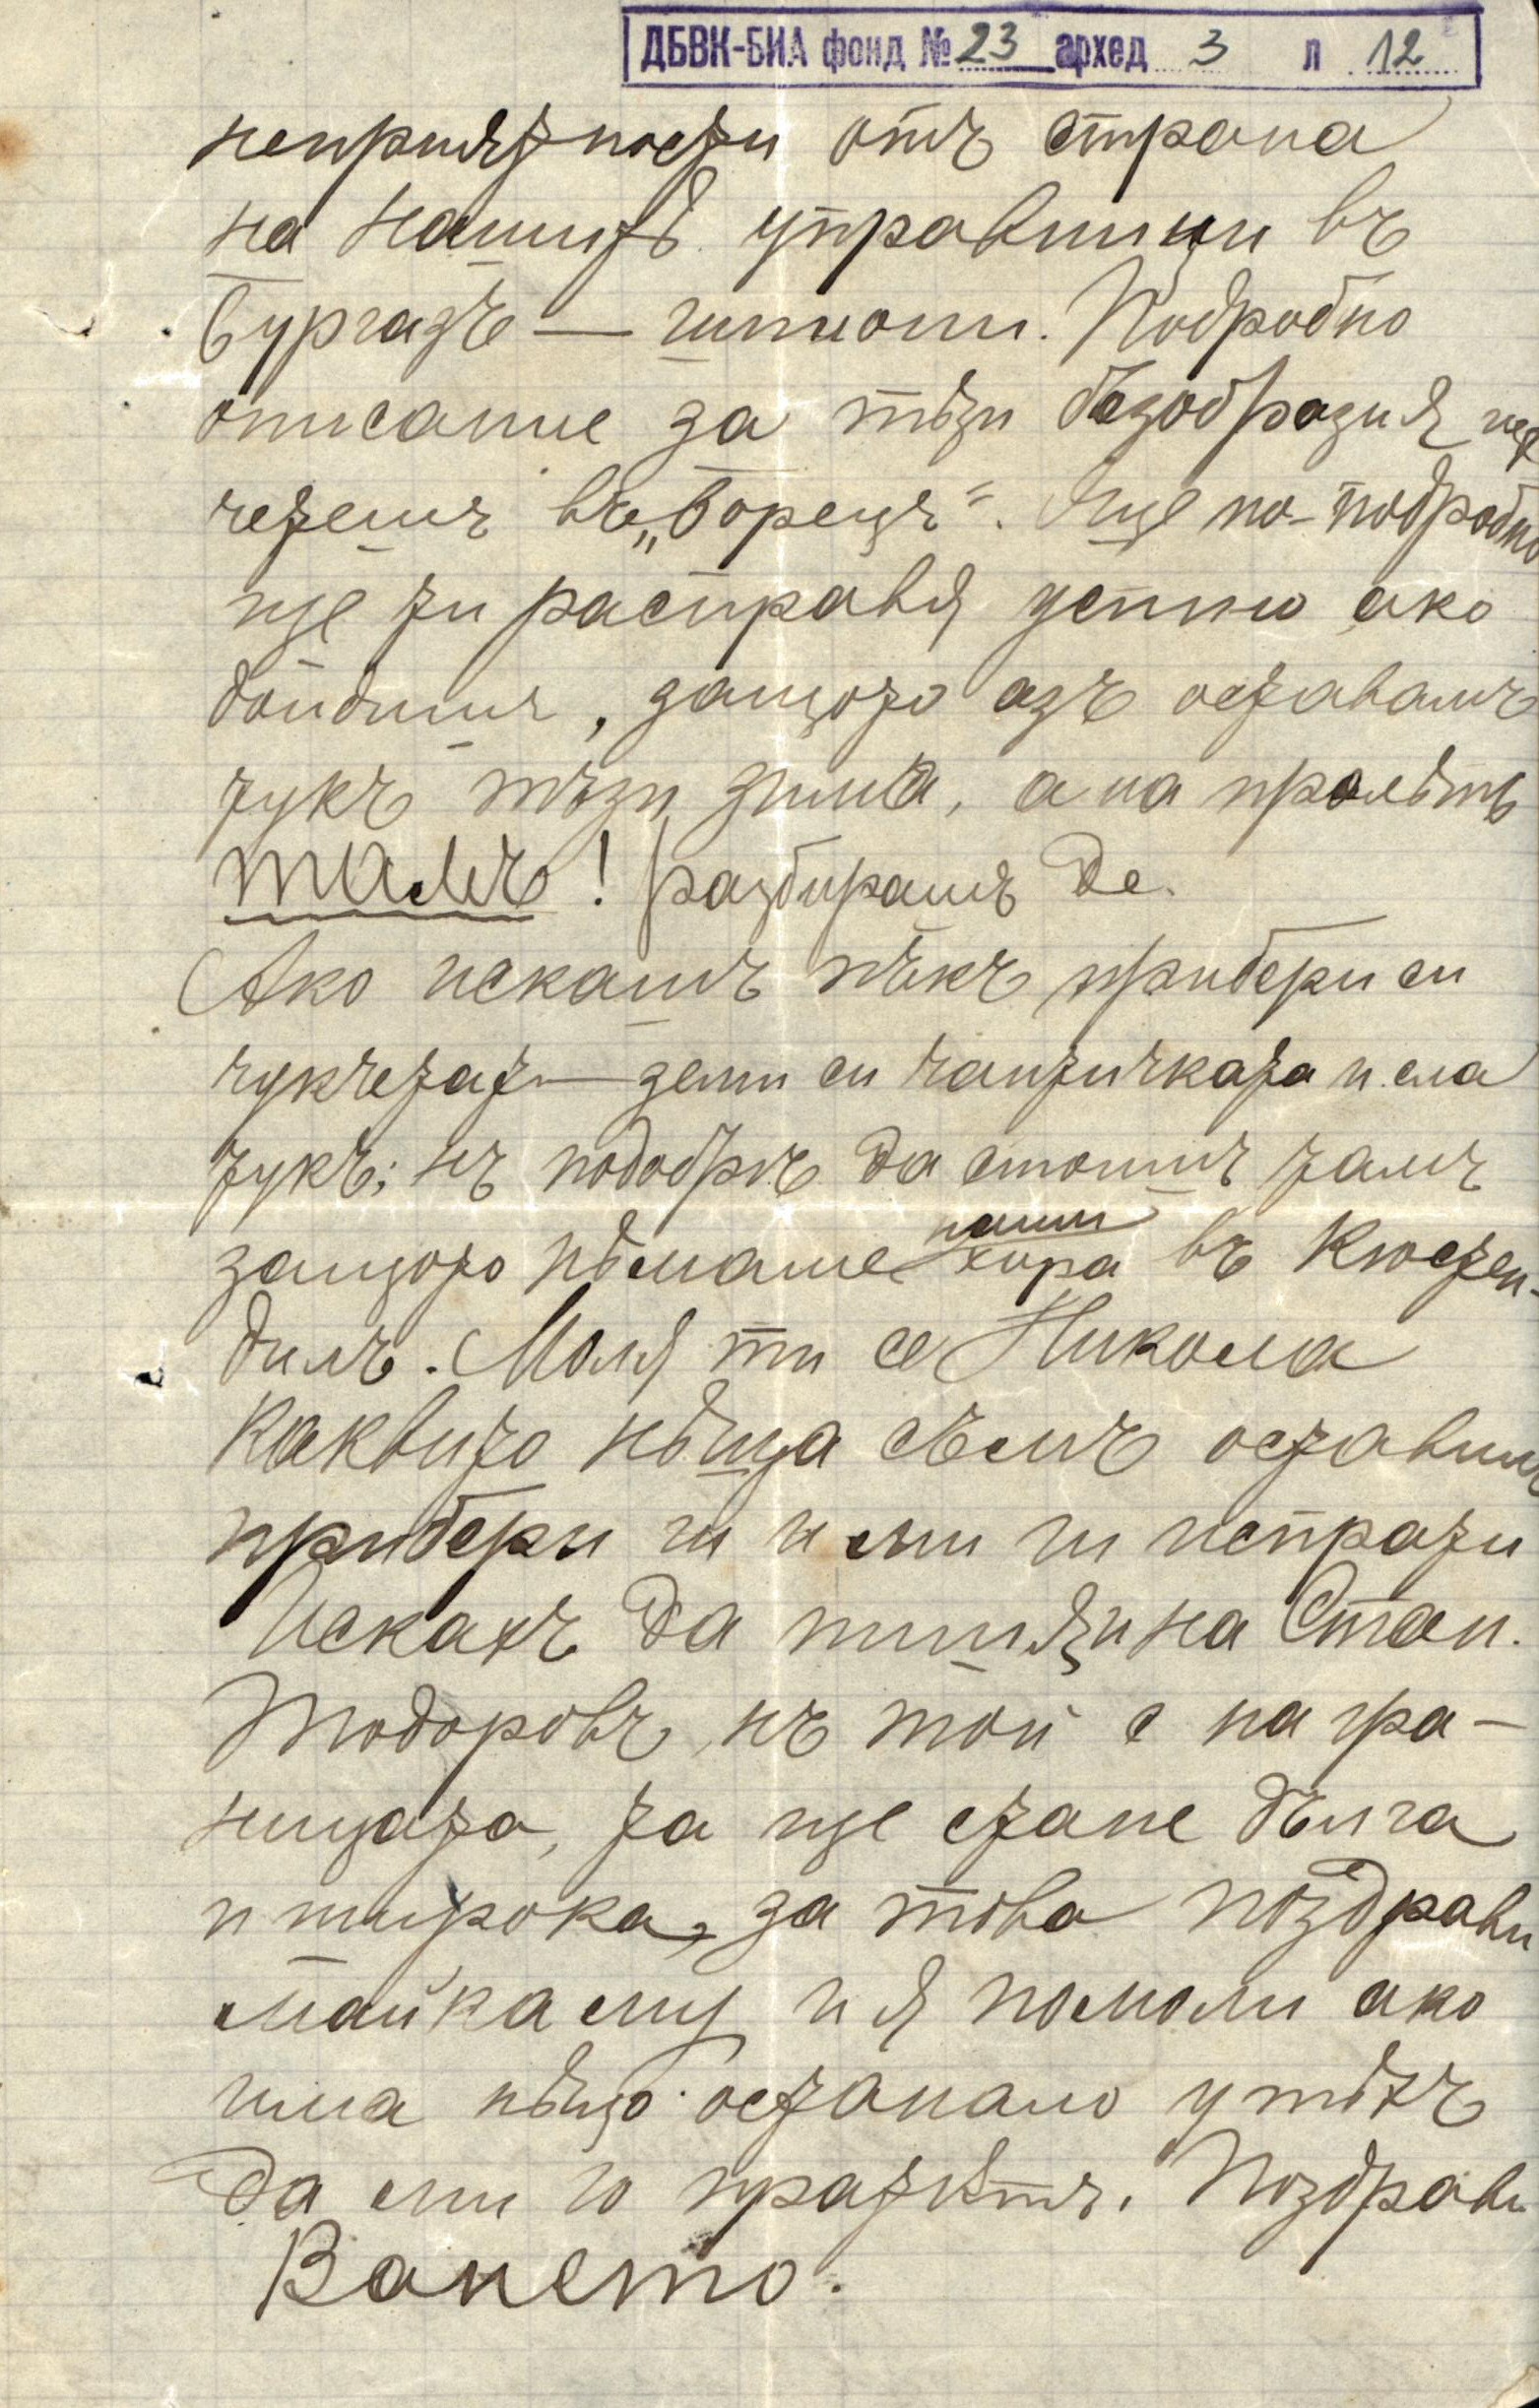 ДБВК-БИА фонд № 23 архед 3 л 12
неприятности отъ страна
на нашитѣ управници въ
Бургазъ — шпиони. Подробно
описание за тѣзи безобразия ще
четешъ въ „Борецъ". Още по-подробно
ще ти расправя устно ако
дойдишъ, защото азъ оставамъ
тукъ тѣзи зима, а на пролѣть
тамъ! разбирашъ де.
Ако искашъ пъкъ прибери си
чукчетат — земи си чантичката и ела
тукъ; нъ подобрѣ да стоишъ тамъ
наши
защото нѣмаме хора въ Кюстен-
дилъ. Моля ти се Никола
каквито нѣща съмъ оставилъ
прибери ги и ми ги испрати
Искахъ да пиша и на Стан.
Тодоровъ, нъ той е на гра-
ницата, та ще стане дълга
и широка, за това поздрави
майка му и я помоли ако
има нѣщо останало у тѣхъ
да ми го пратѣтъ. Поздрави
Ването.